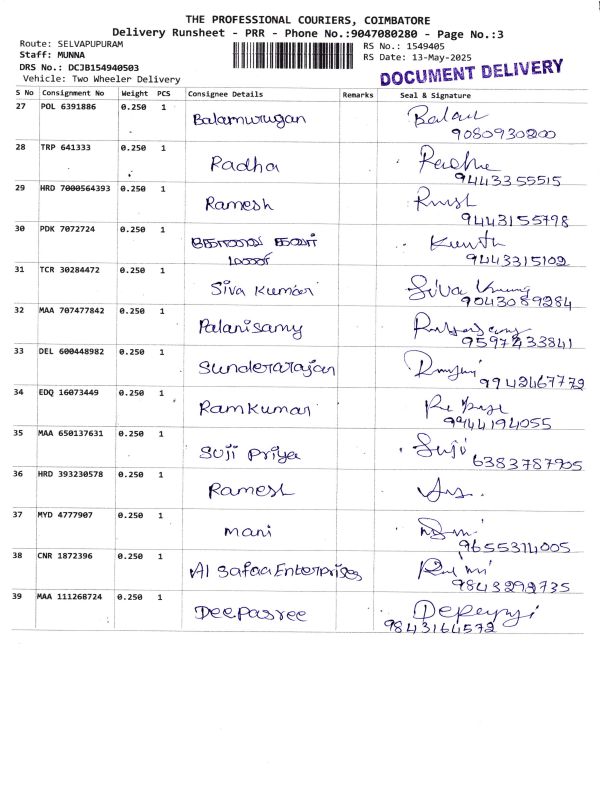 THE PROFESSIONAL COURIERS, COIMBATORE
Delivery Runsheet - PRR - Phone No.:9047080280 - Page No.:3
Route: SELVAPUPURAM
RS No.: 1549405
Staff: MUNNA
RS Date: 13-May-2025
DRS No.: DCJB154940503
Vehicle: Two Wheeler Delivery
DOCUMENT DELIVERY
S No Consignment No Weight PCS Consignee Details Remarks Seal & Signature
27 POL 6391886 0.250 1 Balamurugan Balan
9080930200
28 TRP 641333 0.250 1 Radha Radha
9443355515
29 HRD 7000564393 0.250 1 Ramesh
9443155798
30 PDK 7072724 0.250 1
9443315102
31 TCR 30284472 0.250 1 Siva Kumar Siva Kumar
9043089284
32 MAA 707477842 0.250 1 Palanisamy
9597233841
33 DEL 600448982 0.250 1 Sunderarajan
9942467772
34 EDQ 16073449 0.250 1 Ramkumar
9944194055
35 MAA 650137631 0.250 1 Suji Priya Suji
6383787905
36 HRD 393230578 0.250 1 Ramesh
37 MYD 4777907 0.250 1 mani
9655314005
38 CNR 1872396 0.250 1 Al Safaa Enterprises
9843292735
39 MAA 111268724 0.250 1 Deepasree
9843164572